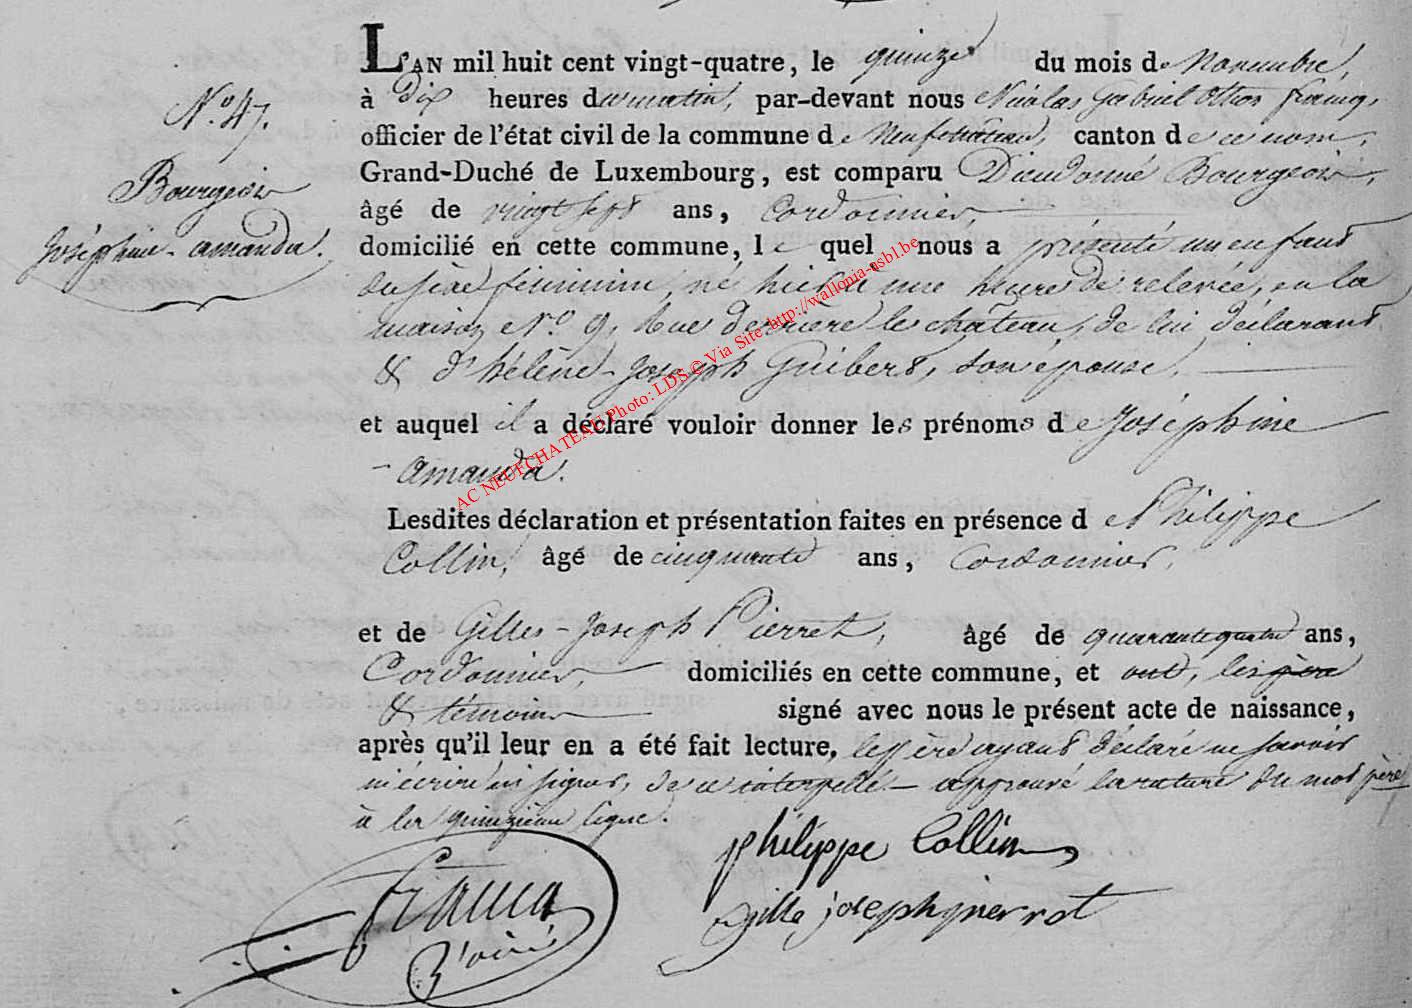 N.° 47.
Bourgeois
Joséphine-amanda.
L'AN mil huit cent vingt-quatre, le quinze du mois de Novembre,
à dix heures du matin, par-devant nous Nicolas Gabriel Francq,
officier de l'état civil de la commune de Neufchâteau, canton de ce nom,
Grand-Duché de Luxembourg, est comparu Dieudonné Bourgeois,
âgé de vingt sept ans, Cordonnier,
domicilié en cette commune, le quel nous a présenté un enfant
du sexe féminin, né hier à une heure de relevée, en la
maison N.° 9, Rue derrière le château, de lui déclarant
& d'hélène-Joseph Guibert, son épouse,
et auquel il a déclaré vouloir donner les prénoms de Joséphine
-amanda.
Lesdites déclaration et présentation faites en présence de Philippe
Collin, âgé de cinquante ans, Cordonnier,
et de Gilles-Joseph Pierret, âgé de quarante quatre ans,
Cordonnier, domiciliés en cette commune, et ont, les père
& témoins signé avec nous le présent acte de naissance,
après qu'il leur en a été fait lecture, le père ayant déclaré ne savoir
ni écrire ni signer, de ce interpellé - approuvé la rature du mot père
à la quinzième ligne.
philippe Collin
gille joseph pierrot
Francq
AC NEUFCHATEAU Photo: LDS © Via Site: http://wallonia-asbl.be